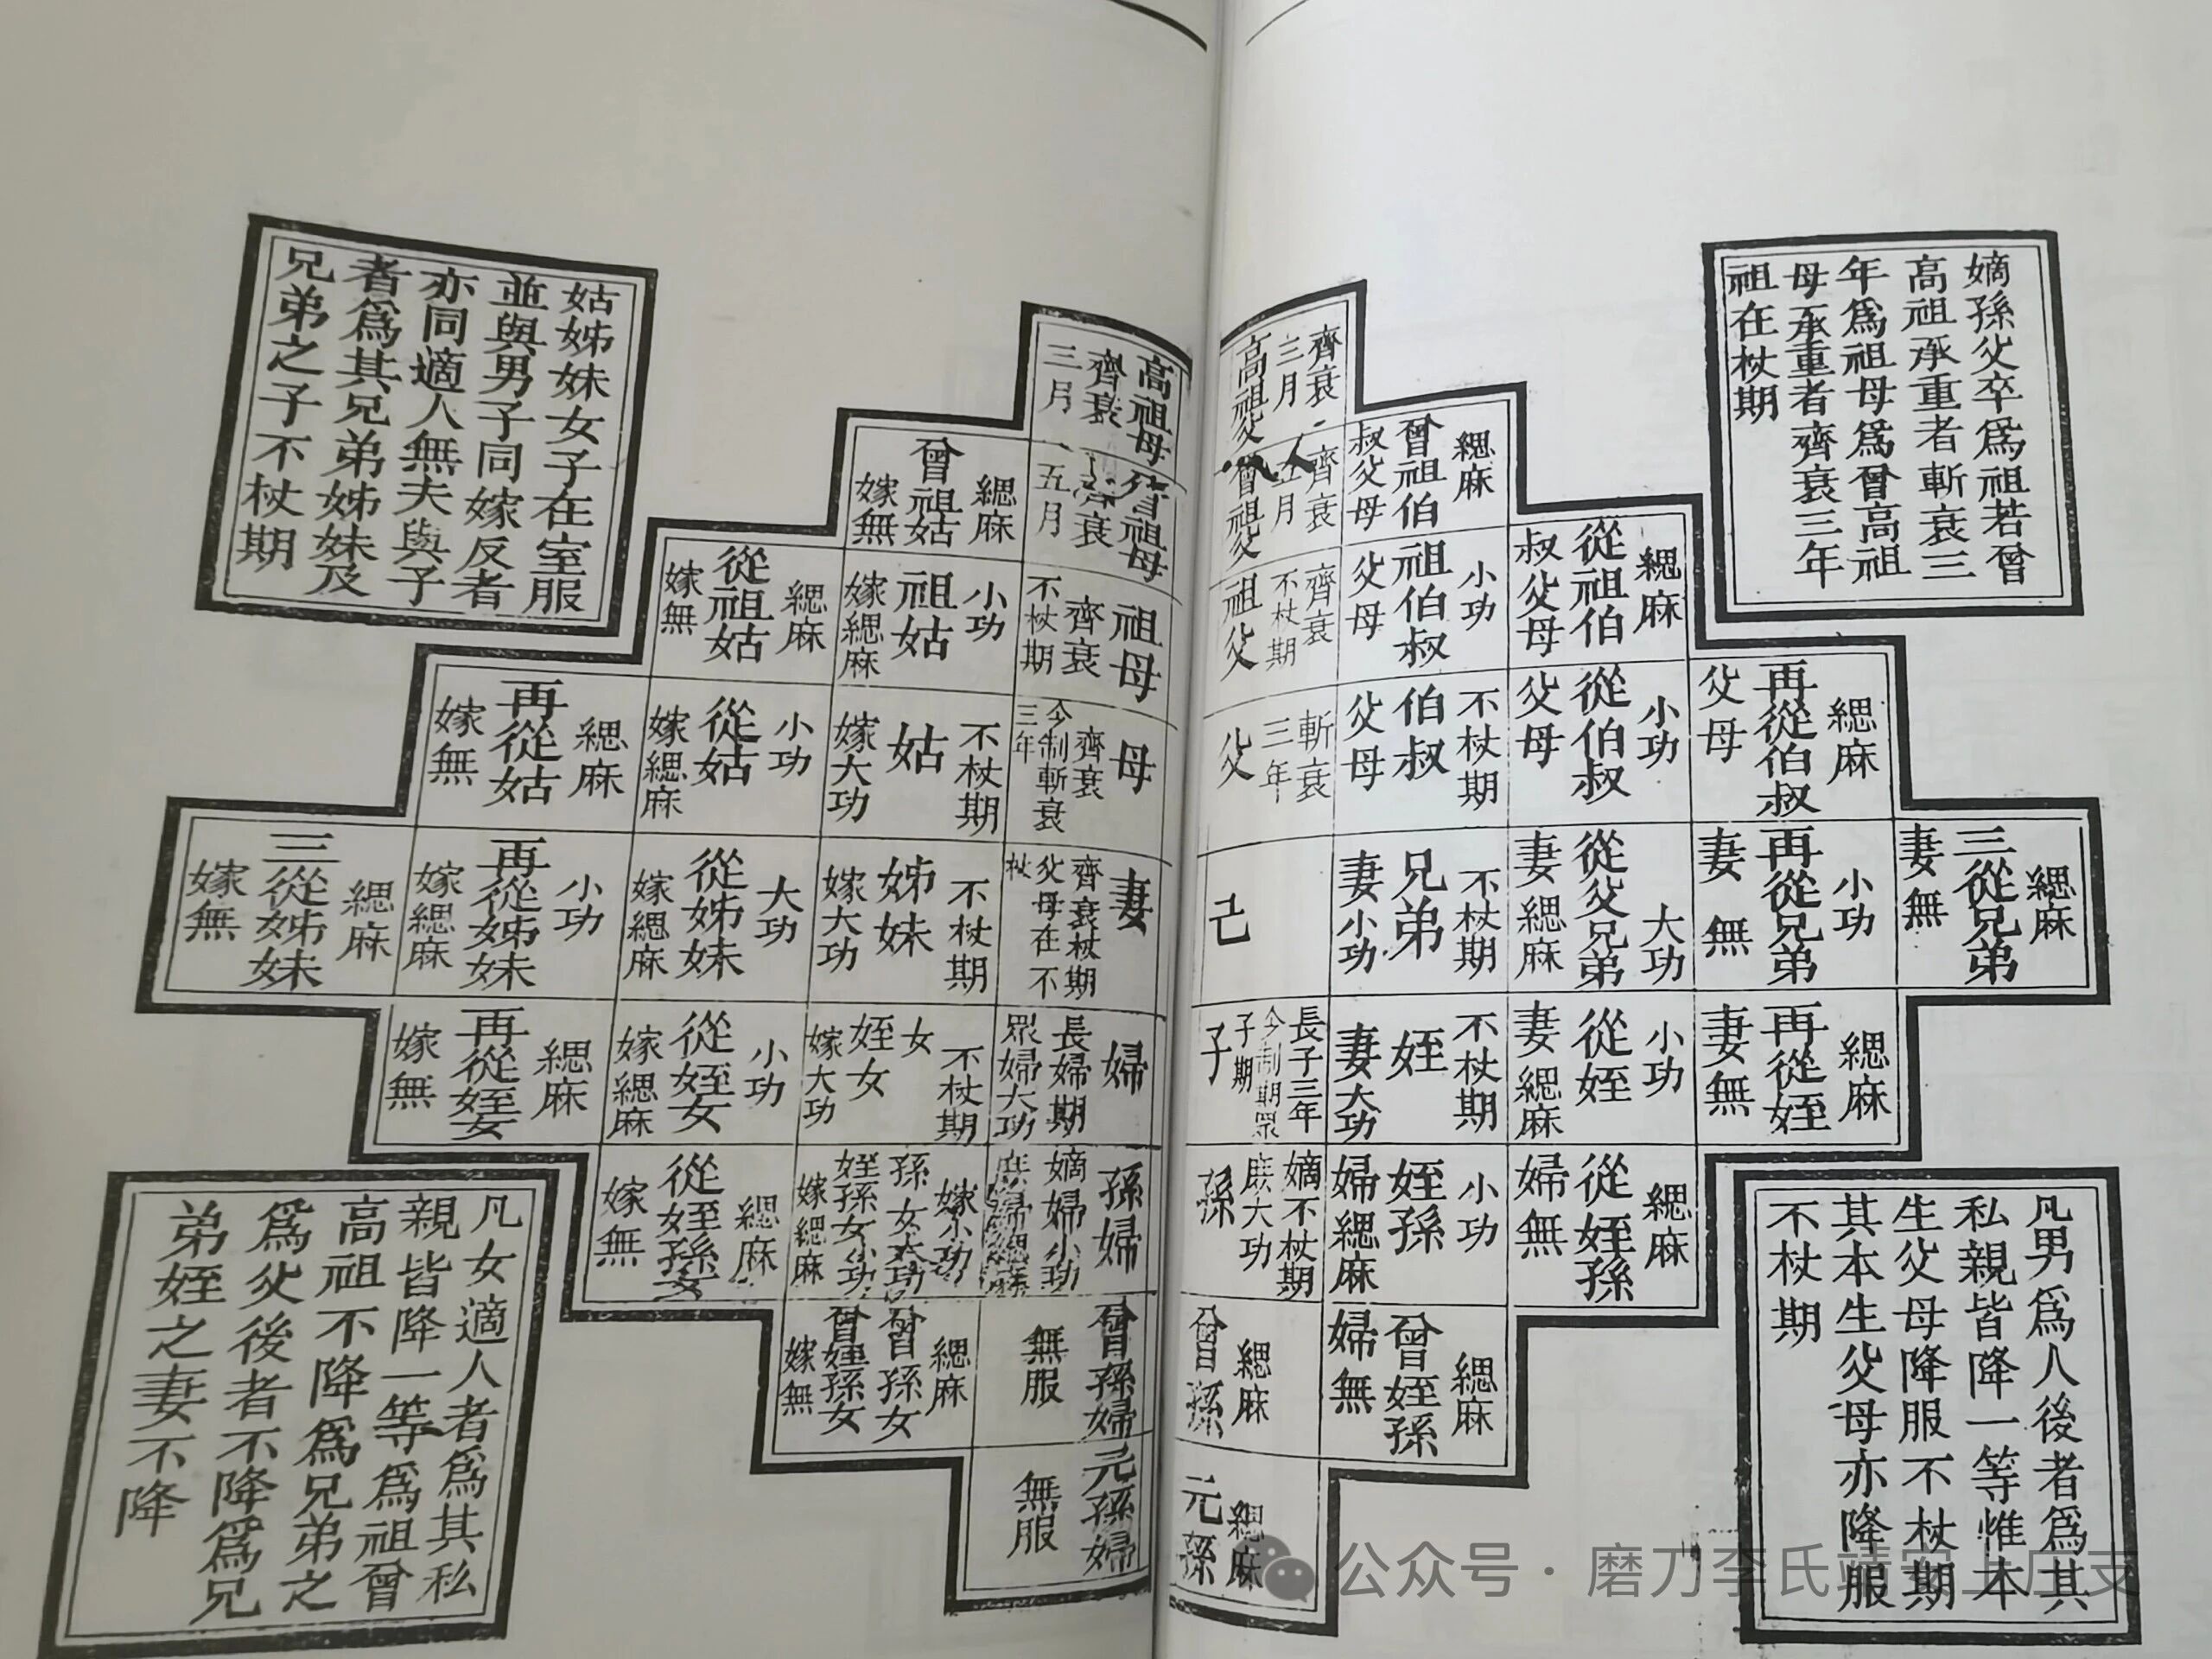 嫡孫父卒爲祖若曾
高祖承重者斬衰三
年爲祖母爲曾高祖
母承重者齊衰三年
祖在杖期
齊衰
三月
高祖父
緦麻
曾祖伯
叔父母
齊衰
五月
曾祖父
緦麻
從祖伯
叔父母
小功
祖伯叔
父母
齊衰
不杖期
祖父
緦麻
再從伯叔
父母
小功
從伯叔
父母
不杖期
伯叔
父母
斬衰
三年
父
緦麻
三從兄弟
妻無
小功
再從兄弟
妻無
大功
從父兄弟
妻緦麻
不杖期
兄弟
妻小功
己
緦麻
再從姪
妻無
小功
從姪
妻緦麻
不杖期
姪
妻大功
長子三年
今制期眾
子期
子
緦麻
從姪孫
婦無
小功
姪孫
婦緦麻
嫡不杖期
庶大功
孫
緦麻
曾姪孫
婦無
緦麻
曾孫
緦麻
元孫
凡男爲人後者爲其
私親皆降一等惟本
生父母降服不杖期
其本生父母亦降服
不杖期
高祖母
齊衰
三月
曾祖母
齊衰
五月
緦麻
曾祖姑
嫁無
祖母
齊衰
不杖期
小功
祖姑
嫁緦麻
緦麻
從祖姑
嫁無
母
齊衰
今制斬衰
三年
不杖期
姑
嫁大功
小功
從姑
嫁緦麻
緦麻
再從姑
嫁無
妻
齊衰杖期
父母在不
杖
不杖期
姊妹
嫁大功
大功
從姊妹
嫁緦麻
小功
再從姊妹
嫁緦麻
緦麻
三從姊妹
嫁無
婦
長婦期
眾婦大功
不杖期
女
姪女
嫁大功
小功
從姪女
嫁緦麻
緦麻
再從姪女
嫁無
孫婦
嫡婦小功
庶婦緦麻
嫁小功
孫女大功
姪孫女小功
嫁緦麻
緦麻
從姪孫女
嫁無
曾孫婦
無服
緦麻
曾孫女
曾姪孫女
嫁無
元孫婦
無服
姑姊妹女子在室服
並與男子同嫁反者
亦同適人無夫與子
者爲其兄弟姊妹及
兄弟之子不杖期
凡女適人者爲其私
親皆降一等爲祖曾
高祖不降爲兄弟之
爲父後者不降爲兄
弟姪之妻不降
公众号·磨刀李氏靖安上庄支